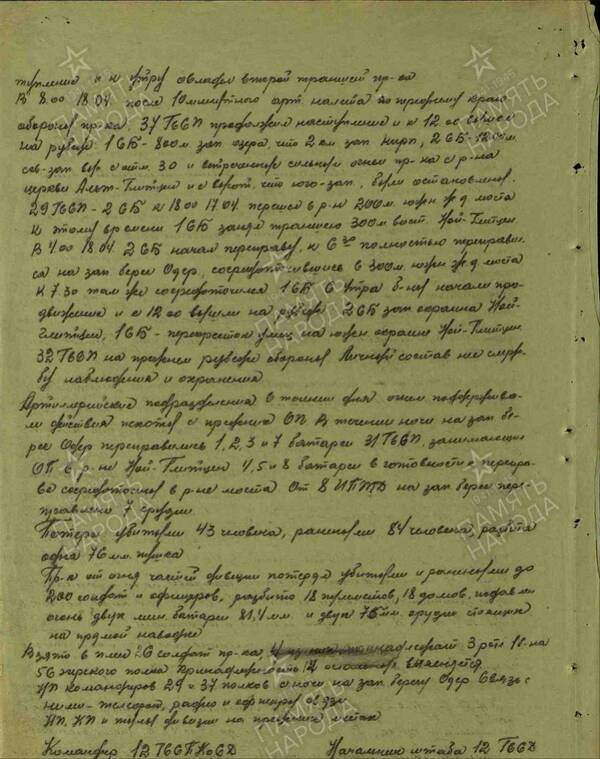 тупление и к утру овладел второй траншеей пр-ка
В 8.00 18.04 после 10 минутного арт. налета по переднему краю
обороны пр-ка 37 ГвСП продолжил наступление и к 12.00 вышел
на рубеж 1 СБ - 800м зап. озера, что 2 км зап. 2 СБ - 1200м
сев-зап. выс. с отм. 3.0 и встреченные сильным огнем пр-ка с р-на
церкви Альт-Глитцен и с высот, что юго-зап., были остановлены.
29 ГвСП - 2 СБ к 18.00 17.04 перешел в р-н 200м. южн. ж.д. моста
К этому времени 1 СБ занял траншею 300м вост. Ной-Глитцен.
В 4.00 18.04 2 СБ начал переправу, к 6.30 полностью переправил-
ся на зап. берег Одер, сосредоточившись в 300м. южн. ж.д. моста
К 7.30 там же сосредоточился 1 СБ. С утра б-ны начали про-
движение и к 12.00 вышли на рубеж 2 СБ зап. окраина Ной-
Глитцен, 1 СБ - перекресток улиц на южн. окраине Ной-Глитцен.
32 ГвСП на прежнем рубеже обороны. Личный состав нес служ-
бу наблюдения и охранения
Артиллерийские подразделения в течении дня огнем поддержива-
ли действия пехоты с прежних ОП. В течении ночи на зап. бе-
рег Одер переправились 1, 2, 3 и 7 батареи 31 ГвСП, занимающие
ОП в р-не Ной-Глитцен 4, 5 и 8 батареи в готовности к перепра-
ве сосредоточены в р-не моста. От 8 ИПТД на зап. берег пере-
правлено 7 орудий.
Потери убитыми 43 человека, ранеными 84 человека, разбита
одна 76 мм. пушка
Пр-к от огня частей дивизии потерял убитыми и ранеными до
200 солдат и офицеров, разбито 18 пулеметов, 18 домов, подавлен
огонь двух мин. батарей 81,4 мм. и двух 75 мм. орудий стоящих
на прямой наводке
Взято в плен 26 солдат пр-ка, 3 роте 1 б-на
56 полка. Принадлежность остальных выясняется
НП командиров 29 и 37 полков с ночи на зап. берегу Одер. Связь с
ними - телефон, радио и офицеры связи
НП, КП и тылы дивизии на прежних местах
Командир 12 ГвСПКСД Начальник штаба 12 ГвСД
ПАМЯТЬ НАРОДА